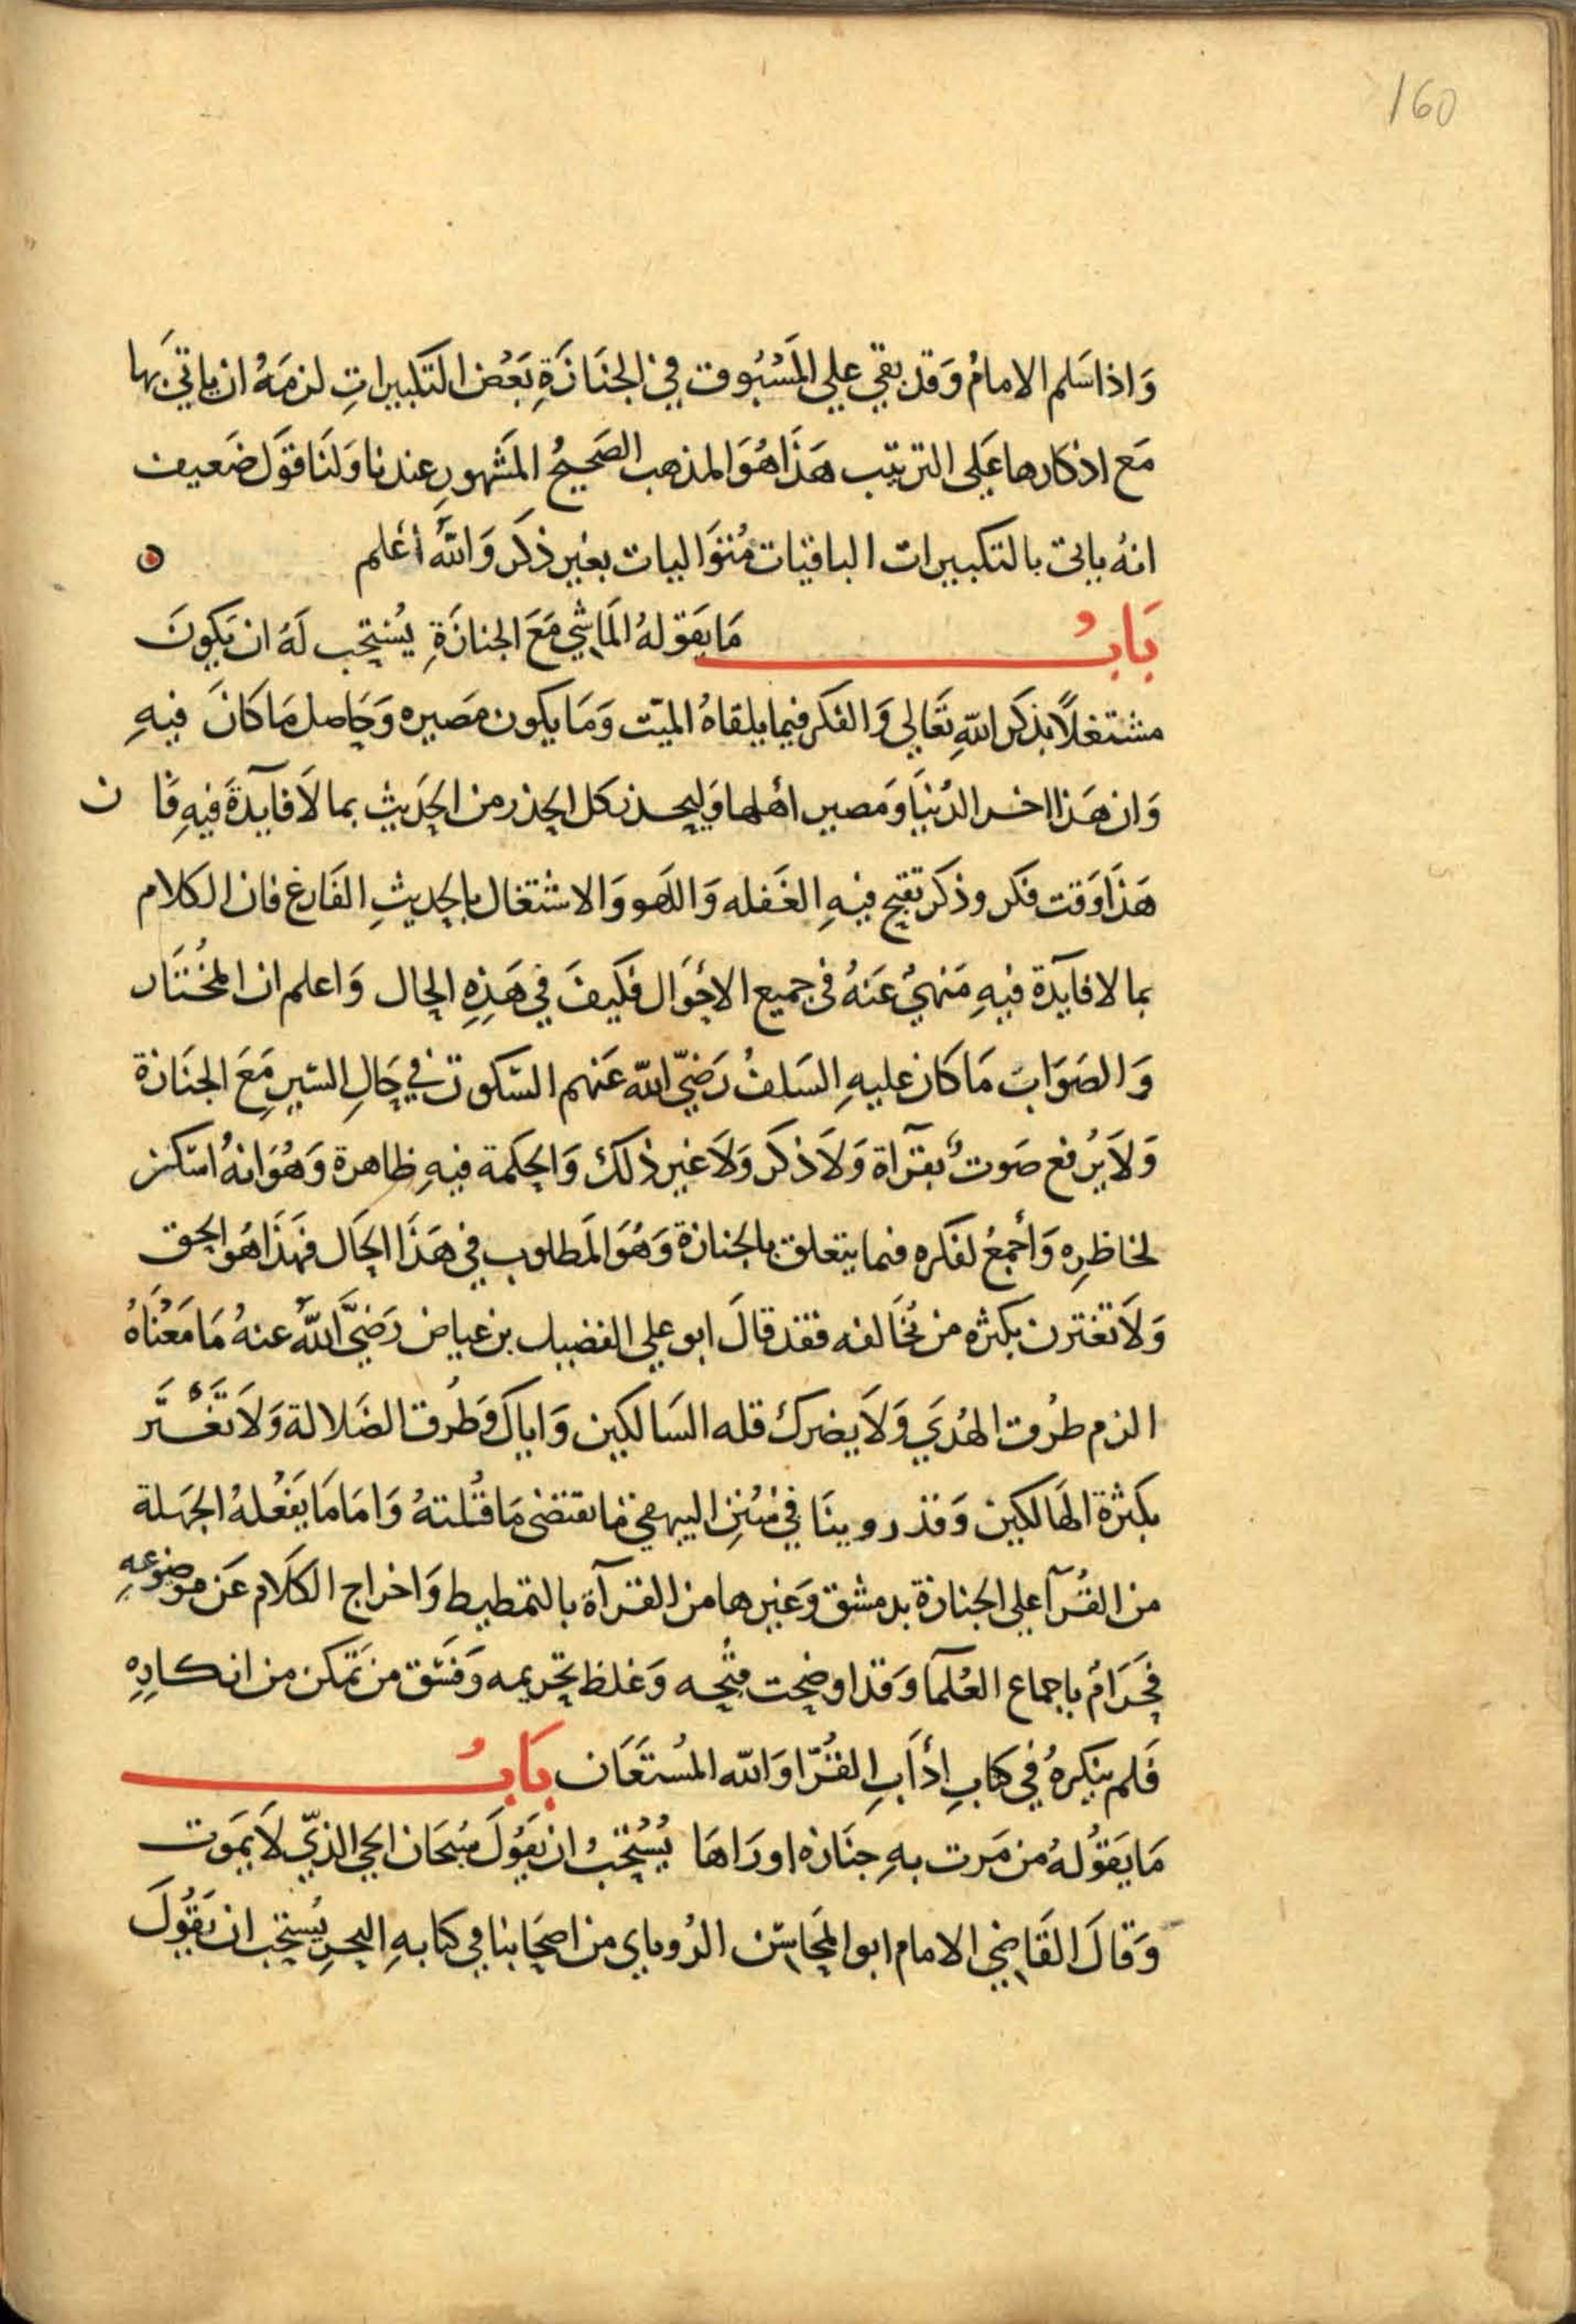 160
وَاذا سَلم الامامُ وَقد بقي علي المَسْبُوق في الجنَازَةِ بَعْض التكبيراتِ لزمَهُ ان ياتيَ بها
مَع اذكارها عَلى الترتيب هَذَا هُوَ المذهب الصَحيحُ المَشهورِ عندنا وَلنَا قوَل ضَعيف
انهُ ياتى بالتكبيرات الباقيات مُتوَاليات بغير ذكَر وَاللهُ أعْلم
بَابُ مَا يقَولهُ المَاشي مَعَ الجنازَةِ يُستحَب لَهُ ان يَكونَ
مشتغلاً بذكر اللهِ تعَالي وَالفكر فيما يلقاهُ الميّت وَمَا يكون مَصيره وَحَاصل مَا كانَ فيهِ
وَان هَذا اخر الدُنيَا وَمَصير أهلها وَليحذر كل الحذر من الحَديث بما لاَ فآيدَةَ فيهِ فَا ن
هَذَا وَقت فكر وذكَر تقبح فيهِ الغَفله وَاللهو وَالاشتغال بالحديثِ الفَارغ فان الكلام
بما لا فايَدة فيهِ مَنهيُ عَنهُ فى جميع الاحْوَال فكَيفَ في هَذِهِ الحال وَاعلم ان المخُتَار
وَالصَوَابَ مَا كان عليهِ السَلفُ رَضيّ الله عَنهم السّكوت في حَالِ السَير مَعَ الجنَازة
وَلاَ يُرفع صَوتُ بقرَآة وَلاَ ذكَر وَلاَ غير ذلكَ وَالحكمة فيهِ ظاهرة وَهُوَ انهُ اسَكن
لخاطِرِه وَأجمعُ لفكره فيما يتعلق بالجنازة وَهُوَ المَطلوب في هَذَا الحَال فهَذَا هُو الحق
وَلاَ تغترن بكثره من يُخَالفه فقد قالَ ابو علي الفضيل بن عياض رَضيَّ اللهُ عنهُ مَا مَعْنَاهُ
الزم طرُق الهُدَي وَلاَ يضرك قله السَالكين وَاياكَ وَطُرق الضَلالة وَلاَ تَغْتَّر
بكثرة الهَالكين وَقد روينَا في سُنن البيهقي مَا يقتضي مَا قُلتهُ وَامَا مَا يَفعْلهُ الجهَلة
من القُرآ على الجنازة بدمشق وَغيرها من القرآة بالتمطيط وَاخراج الكلَام عَن موَضوعهِ
فحَرَامُ باجماع العُلمآ وَقد اوضحت قبُحه وَغلظ تحَريمه وَفسَق من تمَكن من انكارِهِ
فَلم ينكرهُ في كتابِ ادَابِ القُرّا وَالله المُستعَان بَابُ
مَا يَقوُلهُ من مَرت بهِ جنَازه اورَاهَا يُسْتحَبُ ان يَقوُلَ سُبحَان الحي الذيّ لاَ يمَوت
وَقالَ القَاضي الامام ابو المحَاسّن الرُوياي من اصحَابنا في كتابهِ البحر يُستحَب ان يَقوُلَ